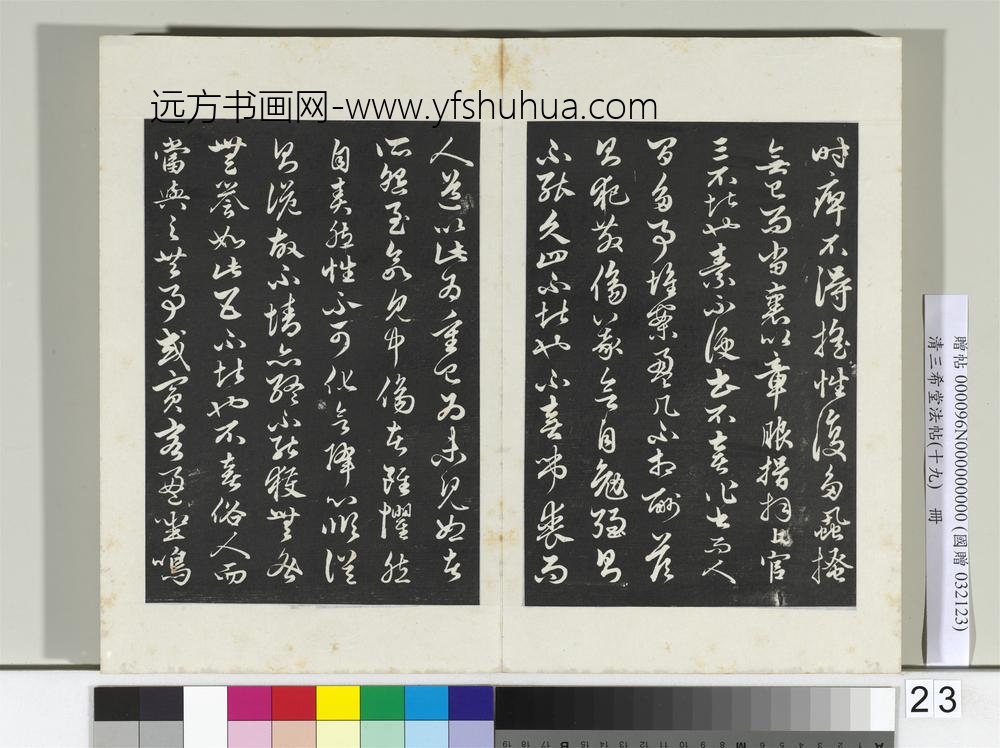 远方书画网-www.yfshuhua.com
时痹不得摇性复多虱搔
无已而当裹以章服揖拜上官
三不堪也素不便书不喜作书而人
间多事堆案盈几不相酬答
则犯教伤义欲自勉强则
不能久四不堪也不喜吊丧而
人道以此为重已为未见恕者
所怨至欲见中伤者虽惧然
自责然性不可化欲降心顺从
则诡故不情亦终不能获无咎
无誉如此五不堪也不喜俗人而
当与之共事或宾客盈坐鸣
贈帖 000096N000000000 (國贈 032123)
清三希堂法帖(十九) 冊
23